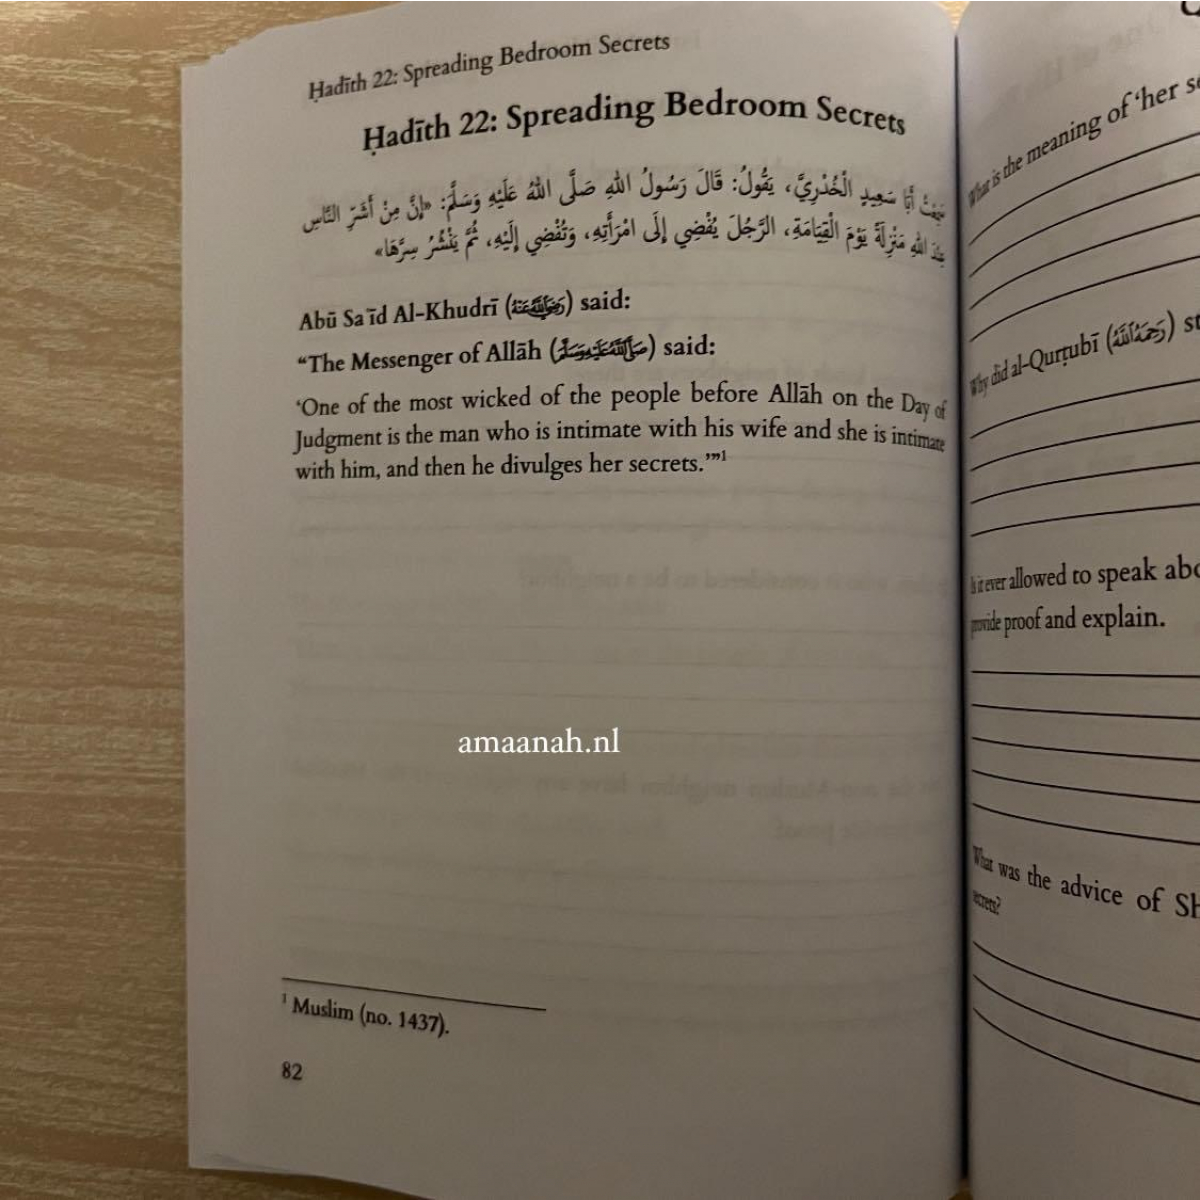 Ḥadīth 22: Spreading Bedroom Secrets
Ḥadīth 22: Spreading Bedroom Secrets
سَمِعْتُ أَبَا سَعِيدٍ الْخُدْرِيَّ، يَقُولُ: قَالَ رَسُولُ اللهِ صَلَّى اللهُ عَلَيْهِ وَسَلَّمَ: «إِنَّ مِنْ أَشَرِّ النَّاسِ
عِنْدَ اللهِ مَنْزِلَةً يَوْمَ الْقِيَامَةِ، الرَّجُلَ يُفْضِي إِلَى امْرَأَتِهِ، وَتُفْضِي إِلَيْهِ، ثُمَّ يَنْشُرُ سِرَّهَا»
Abū Sa'īd Al-Khudrī (رَضِيَ اللَّهُ عَنْهُ) said:
“The Messenger of Allāh (صَلَّى اللَّهُ عَلَيْهِ وَسَلَّمَ) said:
‘One of the most wicked of the people before Allāh on the Day of
Judgment is the man who is intimate with his wife and she is intimate
with him, and then he divulges her secrets.’”¹
amaanah.nl
¹ Muslim (no. 1437).
82
What is the meaning of ‘her
Why did al-Qurṭubī (رَحِمَهُ اللَّهُ)
Is it ever allowed to speak
provide proof and explain.
What was the advice of
secrets?